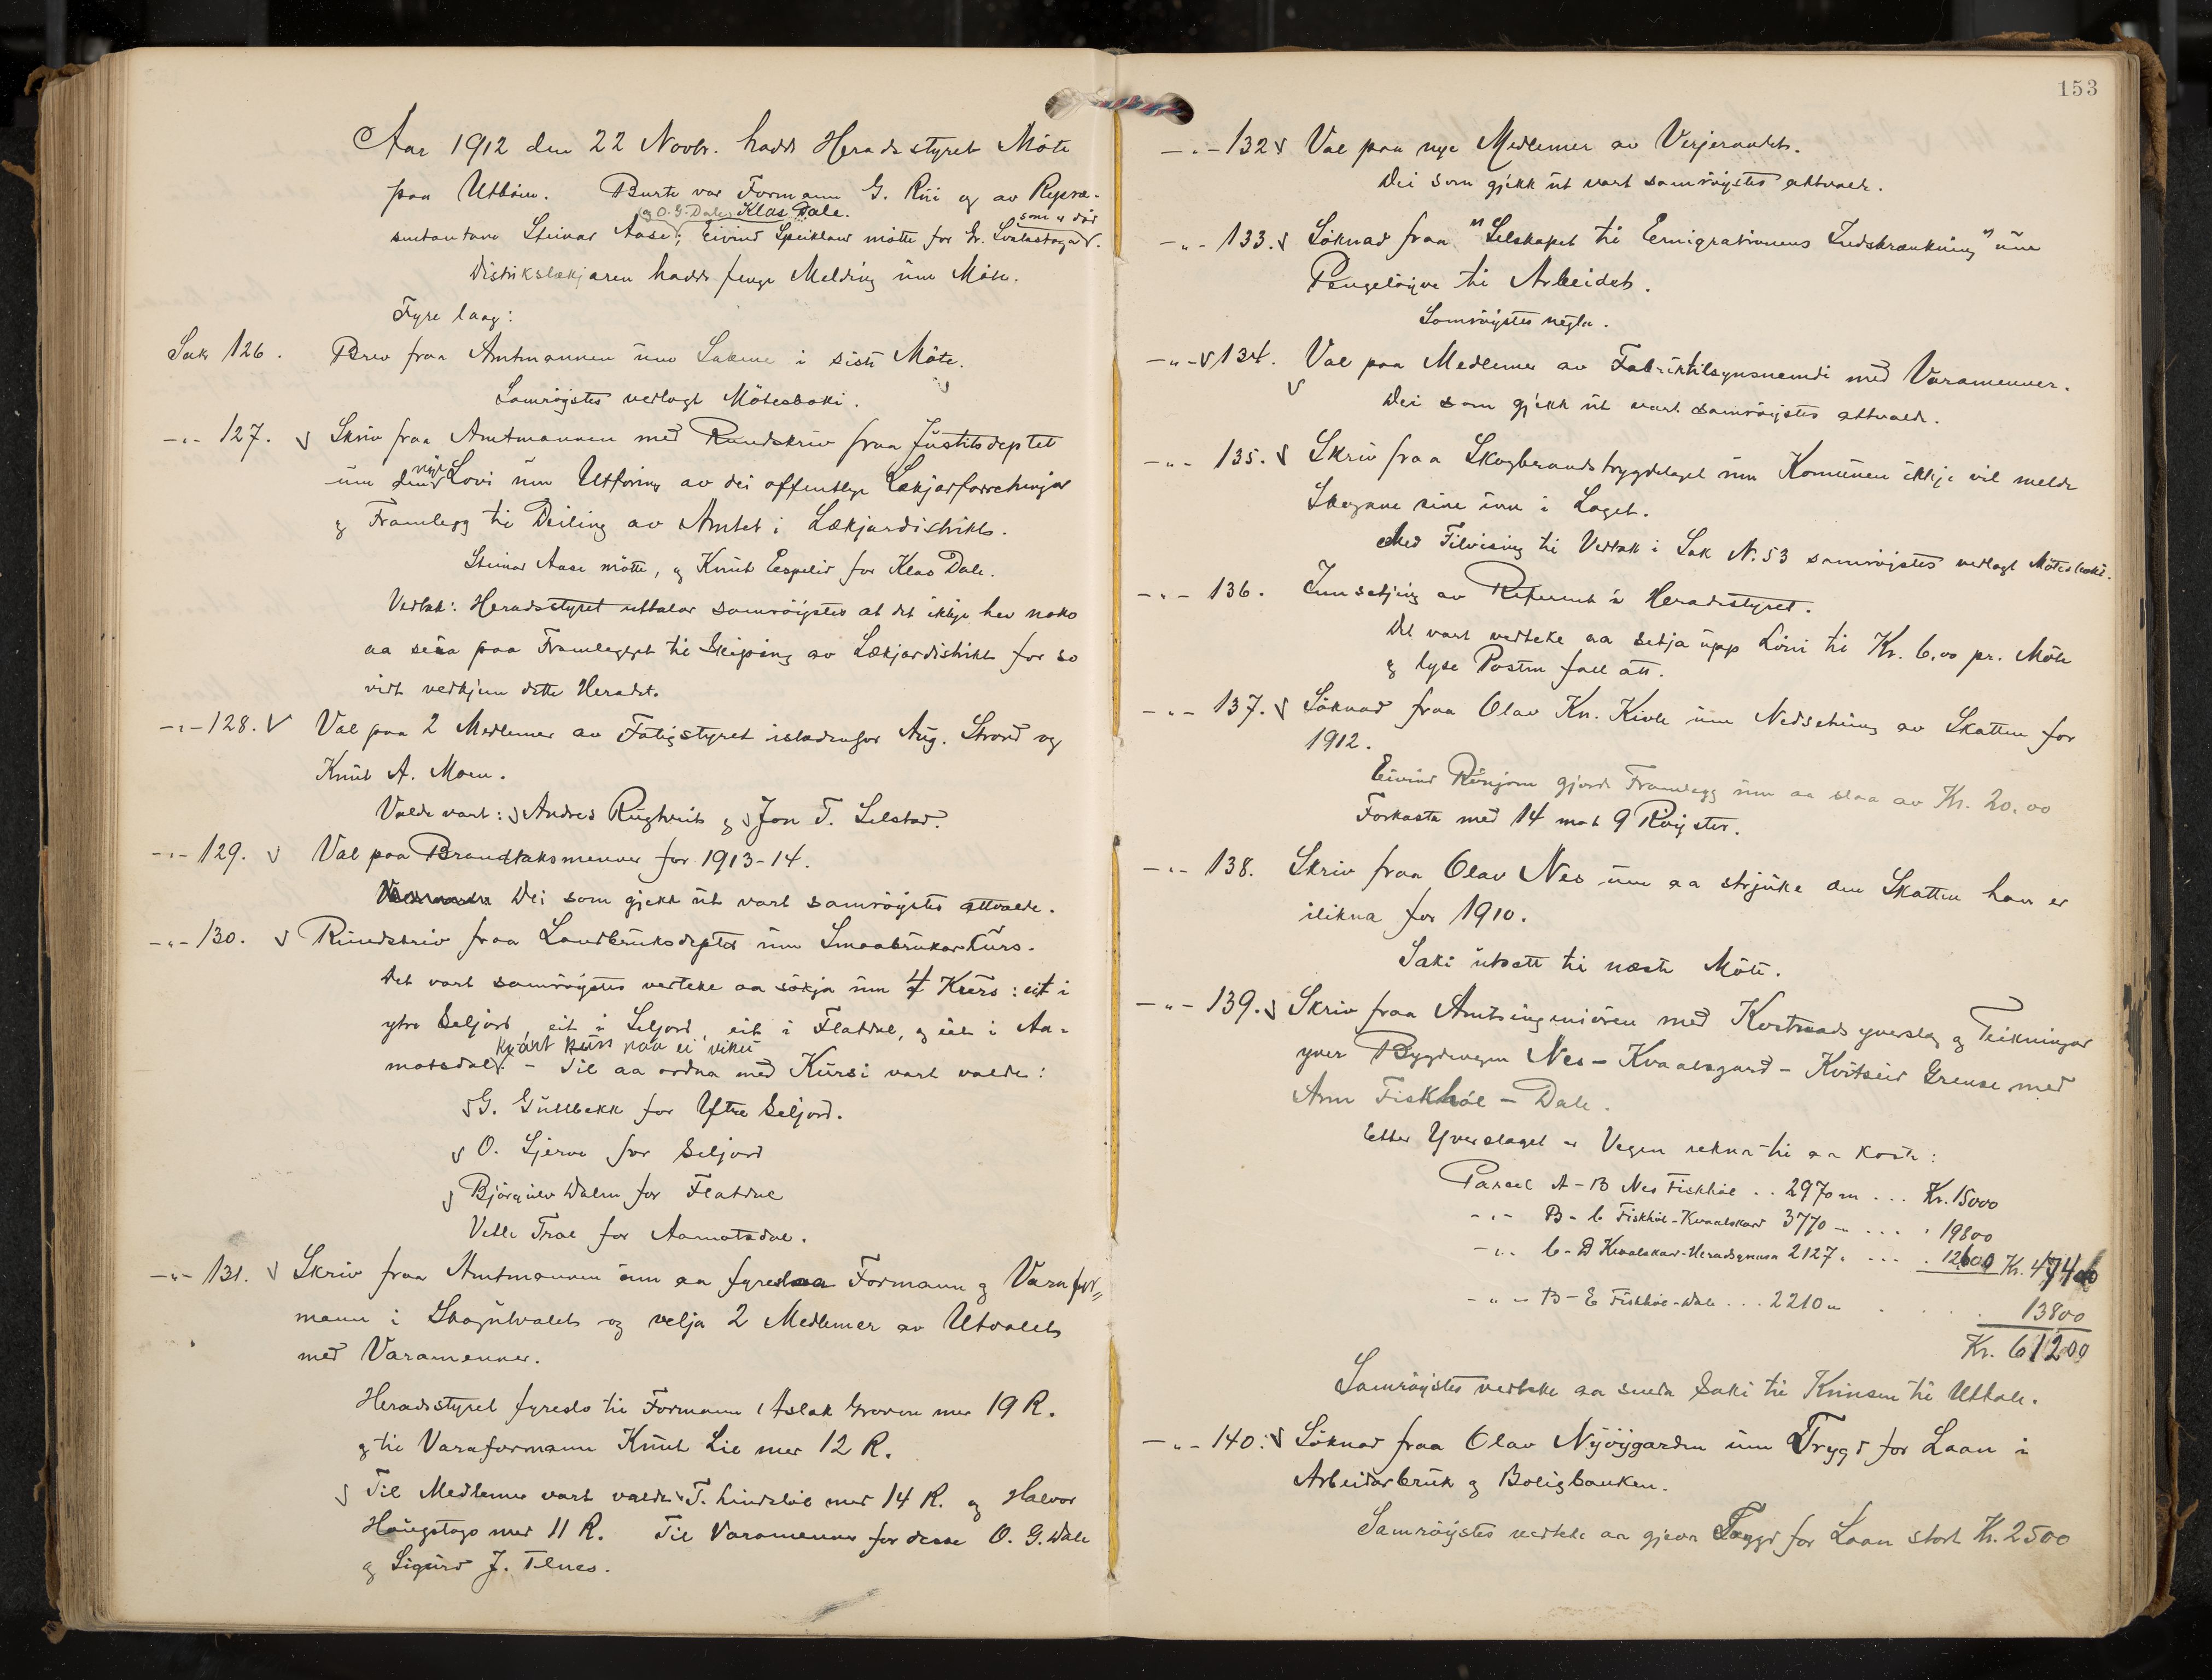 Aar 1912 den 22 Novbr. hadde Heradsstyret Møte
paa Utbøen. Burte var Formann G. Rui og av Repræ-
og O. G. Dale, Klas Dale. som er död
sentantane Steinar Aase; Eivind Speikland møtte for Gr. Svalastoga.
Distrikslækjaren hadde fenge Melding um Møte.
Fyre laag:
Sak 126. Brev fraa Amtmannen um Sakene i siste Møte.
Samrøystes vedlagt Møtesboki.
-"- 127. Skriv fraa Amtmannen med Rundskriv fraa Justitsdeptet
um den nye Lovi um Utføring av dei offentlege Lækjarforretningar
og Framlegg til Deiling av Amtet i Lækjardistrikts.
Steinar Aase møtte, og Knut Espelid for Klas Dale.
Vedtak: Heradsstyret uttalar samrøystes at det ikkje hev noko
aa seia paa Framlegget til Skiping av Lækjardistrikt for so
vidt vedkjem dette Heradet.
-"- 128. Val paa 2 Medlemer av Fatigstyret istadenfor Aug. Strand og
Knut A. Moen.
Valde vart: Andres Rugtveit og Jon T. Selstad.
-"- 129. Val paa Brandtaksmenner for 1913-14.
Dei som gjekk ut vart samrøystes attvalde.
-"- 130. Rundskriv fraa Landbruksdeptet um Smaabrukarkurs.
Det vart samrøystes vedteke aa søkja um 4 Kurs: eit i
ytre Seljord, eit i Seljord, eit i Flatdal, og eit i Aa-
kvart kurs paa ei viku
motsdal. - Til aa ordna med Kursi vart valde:
G. Gullbekk for Ytre Seljord.
O. Ljerva for Seljord
Bjørgulv Dalen for Flatdal
Vetle Trae for Aamotsdal.
-"- 131. Skriv fraa Amtmannen um aa fyreslaa Formann og Varafor-
mann i Skogutvalet og velja 2 Medlemer av Utvalet
med Varamenner.
Heradsstyret fyreslo til Formann Aslak Groven med 19 R.
og til Varaformann Knut Lie med 12 R.
Til Medlemer vart valde T. Lindsløl med 14 R. og Halvor
Haugstoga med 11 R. Til Varamenner for desse O. G. Dale
og Sigurd J. Telnes.
153
-"- 132 Val paa nye Medlemer av Verjeraadet.
Dei som gjekk ut vart samrøystes attvalde.
-"- 133. Søknad fraa "Selskapet til Emigrationens Indskrænkning" um
Pengeløyve til Arbeidet.
Samrøystes negta.
-"- 134. Val paa Medlemer av Fabriktilsynsnemdi med Varamenner.
Dei som gjekk ut vart samrøystes attvalde.
-"- 135. Skriv fraa Skogbrandstrygdelaget um Komunen ikkje vil melde
Skogane sine inn i Laget.
Med Tilvising til Vedtak i Sak N. 53 samrøystes vedlagt Møtesboki.
-"- 136. Innsetjing av Referent i Heradsstyret.
Det vart vedteke aa setja upp Løni til Kr. 6,00 pr. Møte
og lyse Posten fall att.
-"- 137. Søknad fraa Olav Kn. Kivle um Nedsetning av Skatten for
1912.
Eivind Rønjom gjorde Framlegg um aa slaa av Kr. 20,00
Forkasta med 14 mot 9 Røyster.
-"- 138. Skriv fraa Olav Nes um aa strjuke den Skatten han er
ilikna for 1910.
Saki utsett til næste Møte.
-"- 139. Skriv fraa Amtsingeniøren med Kostnadsyverslag og Teikningar
yver Bygdevegen Nes - Kvaalsgard - Kvitseid Grense med
Arm Fiskhøl - Dale.
Etter Yverslaget er Vegen rekna til aa koste:
Parsel A-B Nes Fiskhøl .. 2970 m ... Kr. 15000
-"- B-C Fiskhøl-Kvaalskard 3770 - .... " 19800
-"- C-D Kvaalskar-Heradsgrensa 2127 " .... " 12600 Kr. 47400
-"- B-E Fiskhøl-Dale ... 2210 m . . . . 13800
Kr. 61200
Samrøystes vedteke aa senda Saki til Kninsen til Uttale.
-"- 140. Søknad fraa Olav Nyøygarden um Trygd for Laan i
Arbeidarbruk og Boligbanken.
Samrøystes vedteke aa gjeva Trygd for Laan stort Kr. 2500